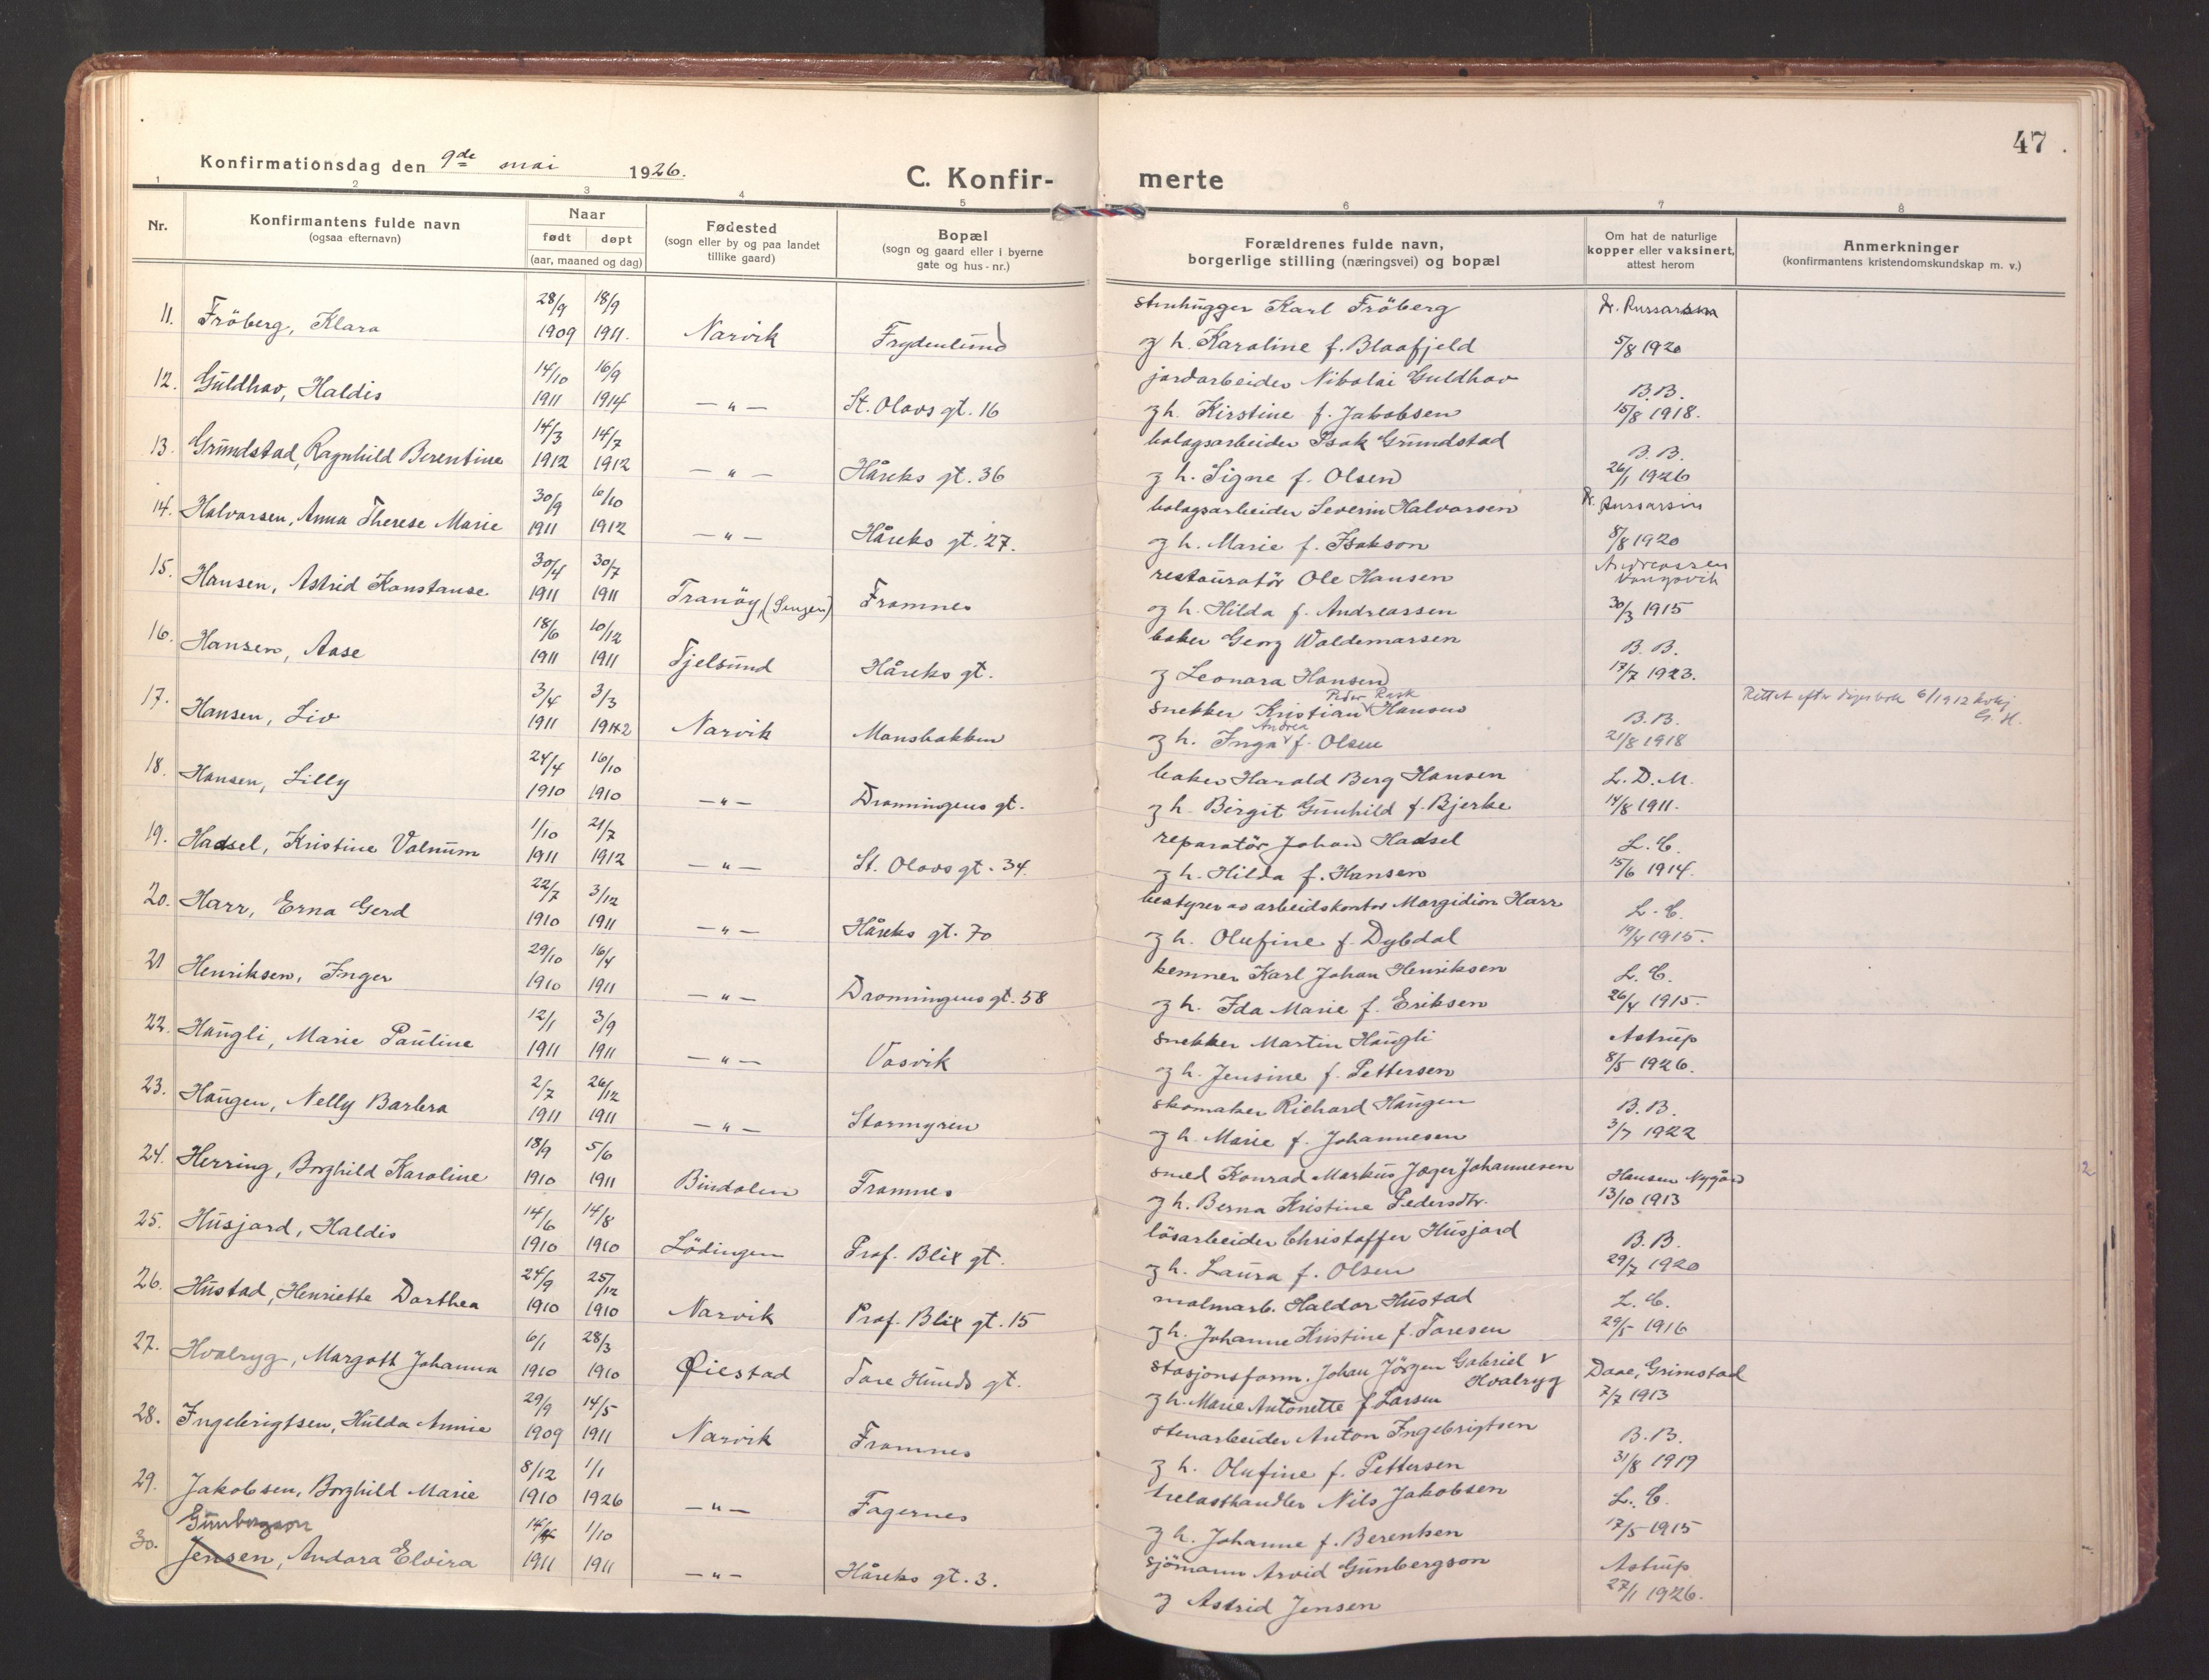 47.
Konfirmationsdag den 9de mai 1926.
C. Konfir- merte
1 2 3 4 5 6 7 8
Nr.
Konfirmantens fulde navn
(ogsaa efternavn)
Naar
født døpt
(aar, maaned og dag)
Fødested
(sogn eller by og paa landet
tillike gaard)
Bopæl
(sogn og gaard eller i byerne
gate og hus-nr.)
Forældrenes fulde navn,
borgerlige stilling (næringsvei) og bopæl
Om hat de naturlige
kopper eller vaksinert,
attest herom
Anmerkninger
(konfirmantens kristendomskundskap m. v.)
11. Fröberg, Klara 28/9 1909 18/9 1911. Narvik Frydenlund stenhugger Karl Fröberg
og h. Karoline f. Blaafjeld 5/8 1920
12. Guldhav, Haldis 14/10 1911 16/9 1914 —"— St. Olavs gt. 16 jordarbeider Nikolai Guldhav
og h. Kirstine f. Jakobsen B.B. 15/8 1918.
13. Grundstad, Ragnhild Berentine 14/3 1912 14/7 1912 —"— Håreks gt. 36 bolagsarbeider Isak Grundstad
og h. Signe f. Olsen B.B. 26/1 1926
14. Halvorsen, Anna Therese Marie 30/9 1911 6/10 1912 —"— Håreks gt. 27. bolagsarbeider Severin Halvorsen
og h. Marie f. Isakson 8/8 1920
15. Hansen, Astrid Konstanse 30/4 1911 30/7 1911 Tranöy, (Senjen) Framnes restauratör Ole Hansen
og h. Hilda f. Andreassen Andreassen 30/3 1915
16. Hansen, Aase 18/6 1911 10/12 1911 Tjelsund Håreks gt. baker Georg Waldemarsen
og Leonara Hansen B.B. 17/7 1923.
17. Hansen, Liv 3/4 1911 3/3 1912 Narvik Mansbakken snekker Kristian Peder Rask Hansen
og h. Inga Andrea f. Olsen B.B. 21/8 1918 Rettet efter
G. H.
18. Hansen, Lilly 24/4 1910 16/10 1910 —"— Dronningens gt. baker Harald Berg Hansen
og h. Birgit Gunhild f. Bjerke L.D.M. 14/8 1911.
19. Hadsel, Kristine Valnum 1/10 1911 21/7 1912 —"— St. Olavs gt. 34. reparatör Johan Hadsel
og h. Hilda f. Hansen L.C. 15/6 1914.
20. Harr, Erna Gerd 22/7 1910 3/12 1911 —"— Håreks gt. 70 bestyrer av arbeidskontor Margidion Harr
og h. Olufine f. Dybdal L.C. 19/4 1915.
21 Henriksen, Inger 29/10 1910 16/4 1911 —"— Dronningens gt. 58 kemner Karl Johan Henriksen
og h. Ida Marie f. Eriksen L.C. 26/4 1915.
22. Haugli, Marie Pauline 12/1 1911 3/9 1911 —"— Vasvik snekker Martin Haugli
og h. Jensine f. Pettersen Astrup 8/5 1926.
23. Haugen, Nelly Barbra 2/7 1911 26/12 1911 —"— Stormyren skomaker Richard Haugen
og h. Marie f. Johannesen B.B. 3/7 1922
24. Herring, Borghild Karoline 18/9 1910 5/6 1911 Bindalen Framnes smed Konrad Markus Jæger Johannesen
og h. Berna Kristine Pedersdtr. Hansen Nygård 13/10 1913
25. Husjord, Haldis 14/6 1910 14/8 1910 Lödingen Prof. Blix gt. lösarbeider Christoffer Husjord
og h. Laura f. Olsen B.B. 29/7 1920
26. Hustad, Henriette Dorthea 24/9 1910 25/12 1910 Narvik Prof. Blix gt. 15 malmarb. Haldor Hustad
og h. Johanne Kristine f. Toresen L.C. 29/5 1916
27. Hvalryg, Margott Johanna 6/1 1910 28/3 1910 Øiestad Tore Hunds gt. Stasjonsform. Johan Jörgen Gabriel Hvalryg
og h. Marie Antonette f Larsen Daae, Grimstad 7/7 1913
28. Ingebrigtsen, Hulda Annie 29/9 1909 14/5 1911 Narvik Framnes stenarbeider Anton Ingebrigtsen
og h. Olufine f. Pettersen B.B. 31/8 1919
29. Jakobsen, Borghild Marie 8/12 1910 1/1 1926 —"— Fagernes trelasthandler Nils Jakobsen
og h. Johanne f. Berentsen L.C. 17/5 1915
30. Gunbergson
Jensen, Andora Elvira 1911 1/10 1911 —"— Håreks gt. 3. sjömann Arvid Gunbergson
og Astrid Jensen Astrup 27/1 1926.